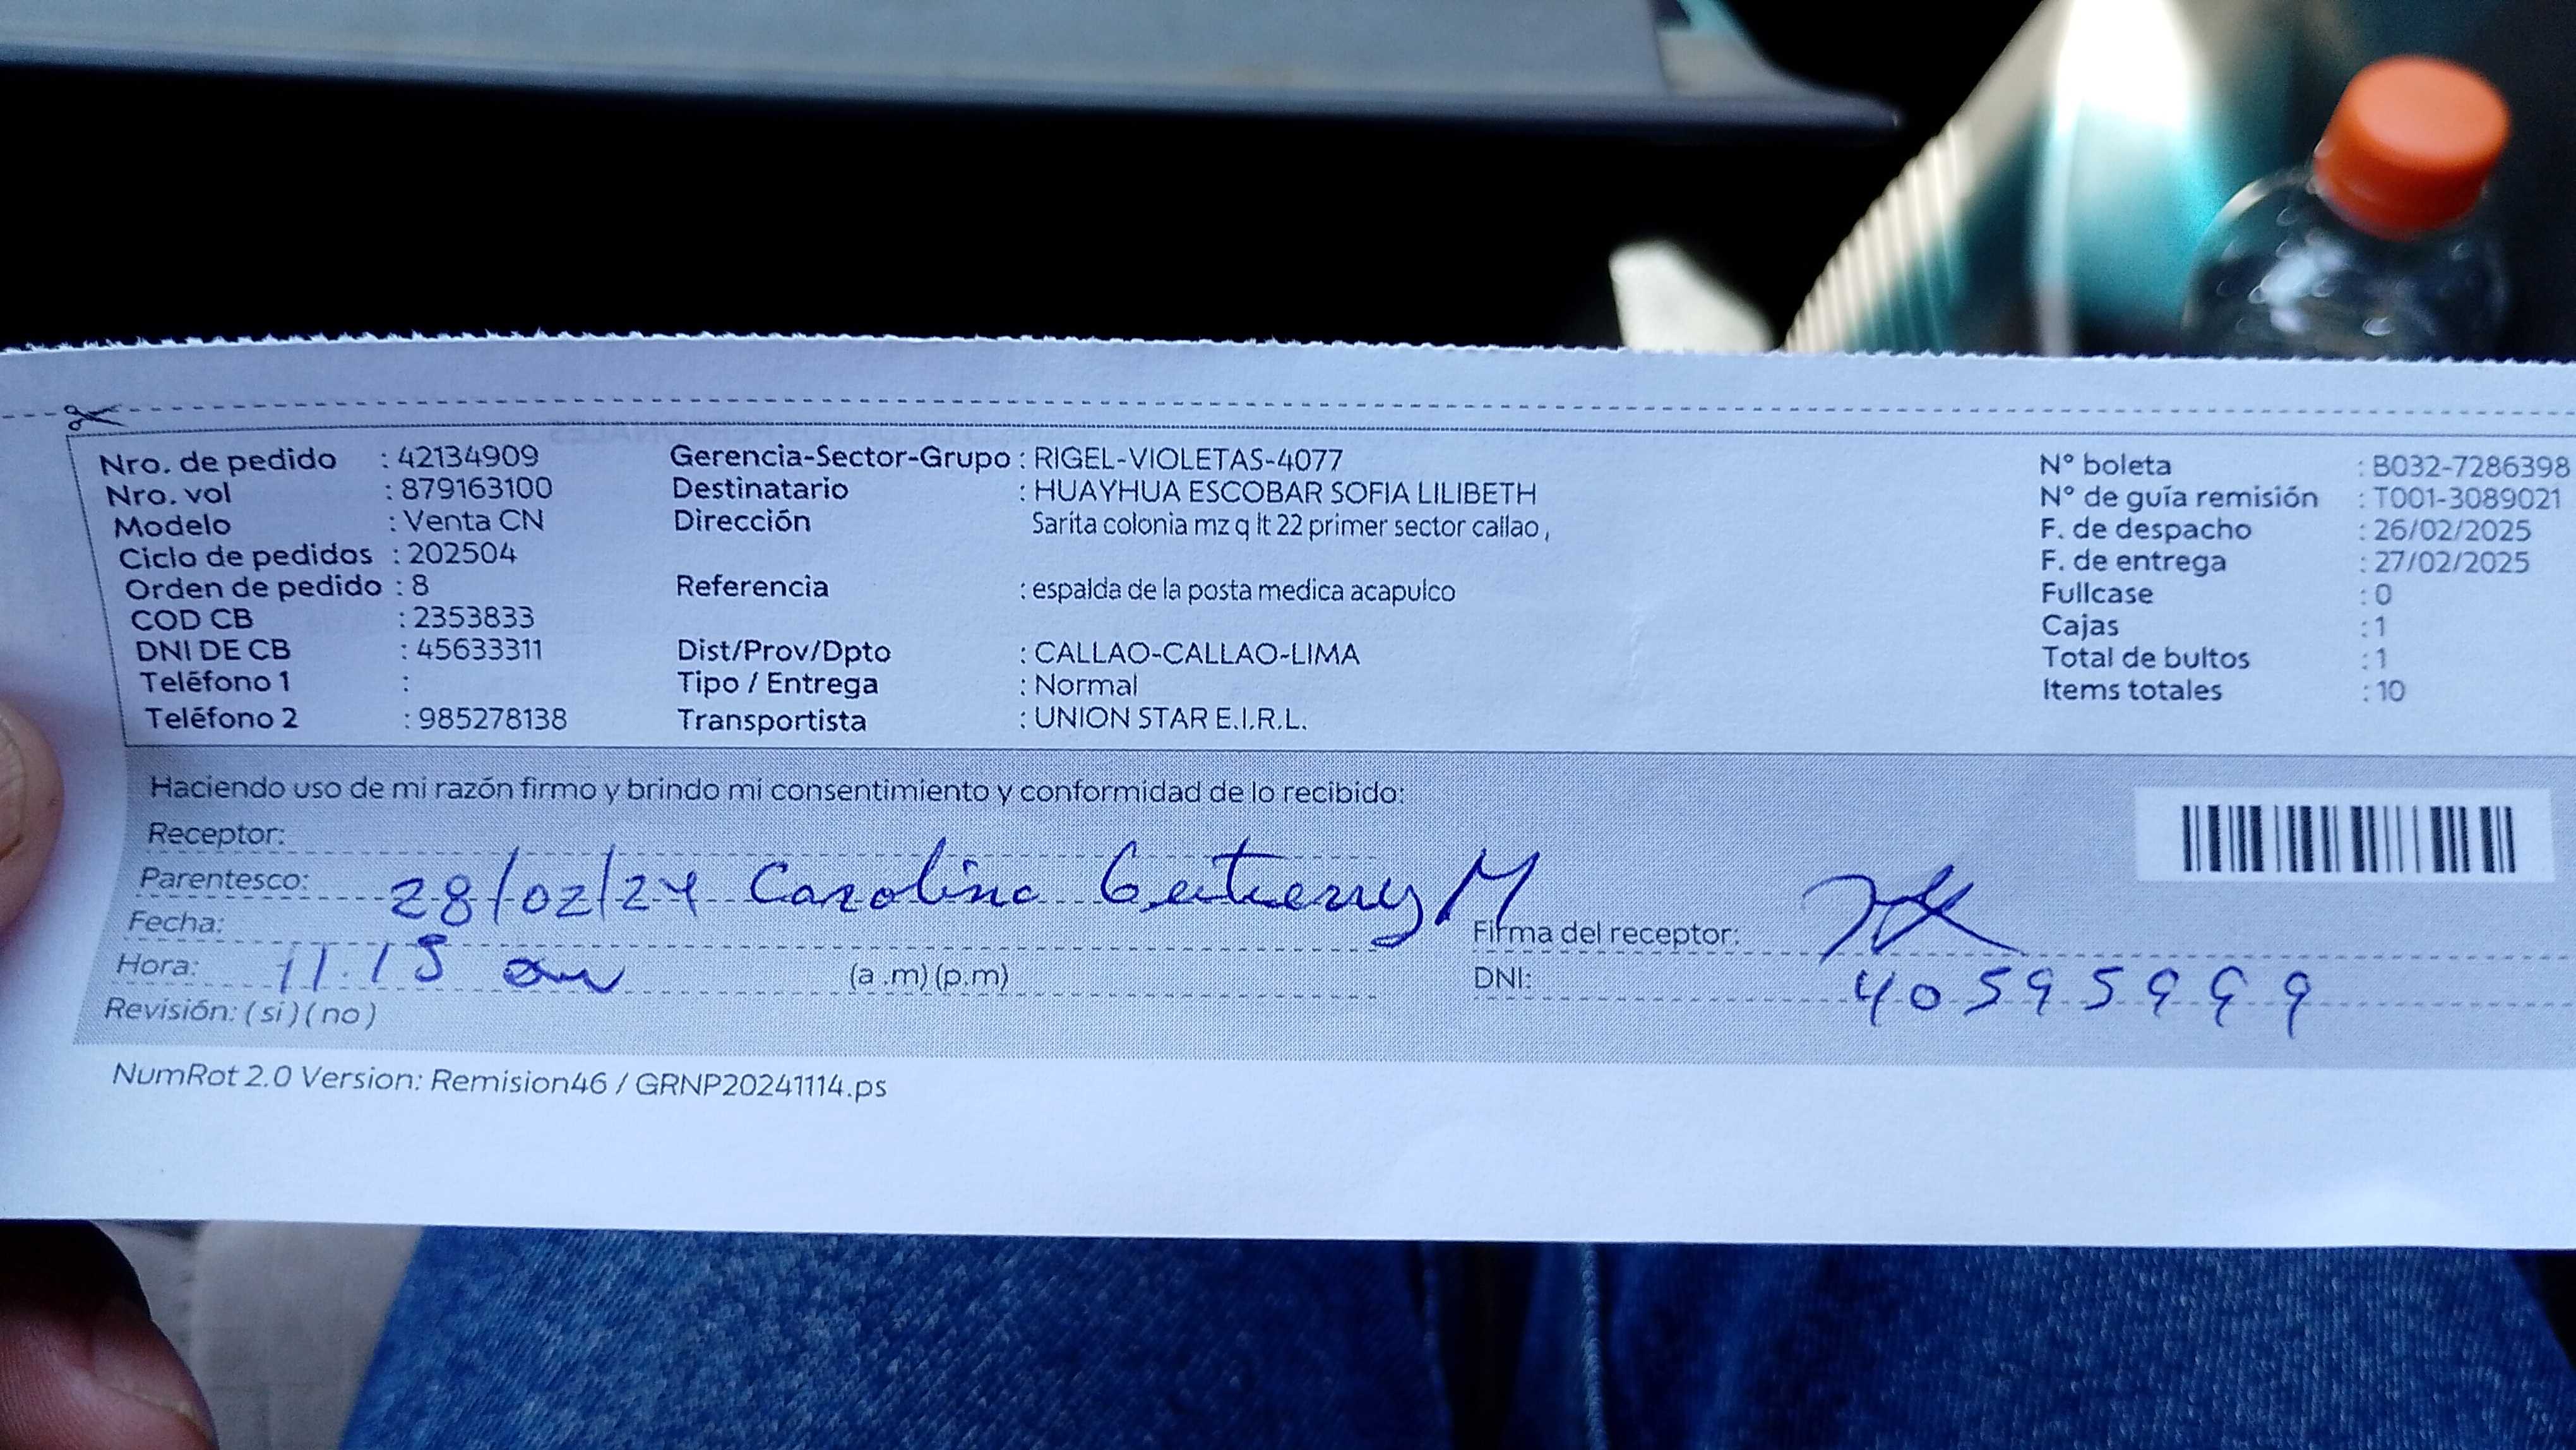 Nro. de pedido : 42134909
Nro. vol : 879163100
Modelo : Venta CN
Ciclo de pedidos : 202504
Orden de pedido : 8
COD CB : 2353833
DNI DE CB : 45633311
Teléfono 1 :
Teléfono 2 : 985278138
Gerencia-Sector-Grupo : RIGEL-VIOLETAS-4077
Destinatario : HUAYHUA ESCOBAR SOFIA LILIBETH
Dirección Sarita colonia mz q lt 22 primer sector callao ,
Referencia : espalda de la posta medica acapulco
Dist/Prov/Dpto : CALLAO-CALLAO-LIMA
Tipo / Entrega : Normal
Transportista : UNION STAR E.I.R.L.
N° boleta : B032-7286398
N° de guía remisión : T001-3089021
F. de despacho : 26/02/2025
F. de entrega : 27/02/2025
Fullcase : 0
Cajas : 1
Total de bultos : 1
Items totales : 10
Haciendo uso de mi razón firmo y brindo mi consentimiento y conformidad de lo recibido:
Receptor:
Parentesco: 28/02/24 Carolina M
Fecha:
Hora: 11.15 am (a .m) (p.m)
Revisión: ( si ) ( no )
Firma del receptor:
DNI: 40595999
NumRot 2.0 Version: Remision46 / GRNP20241114.ps